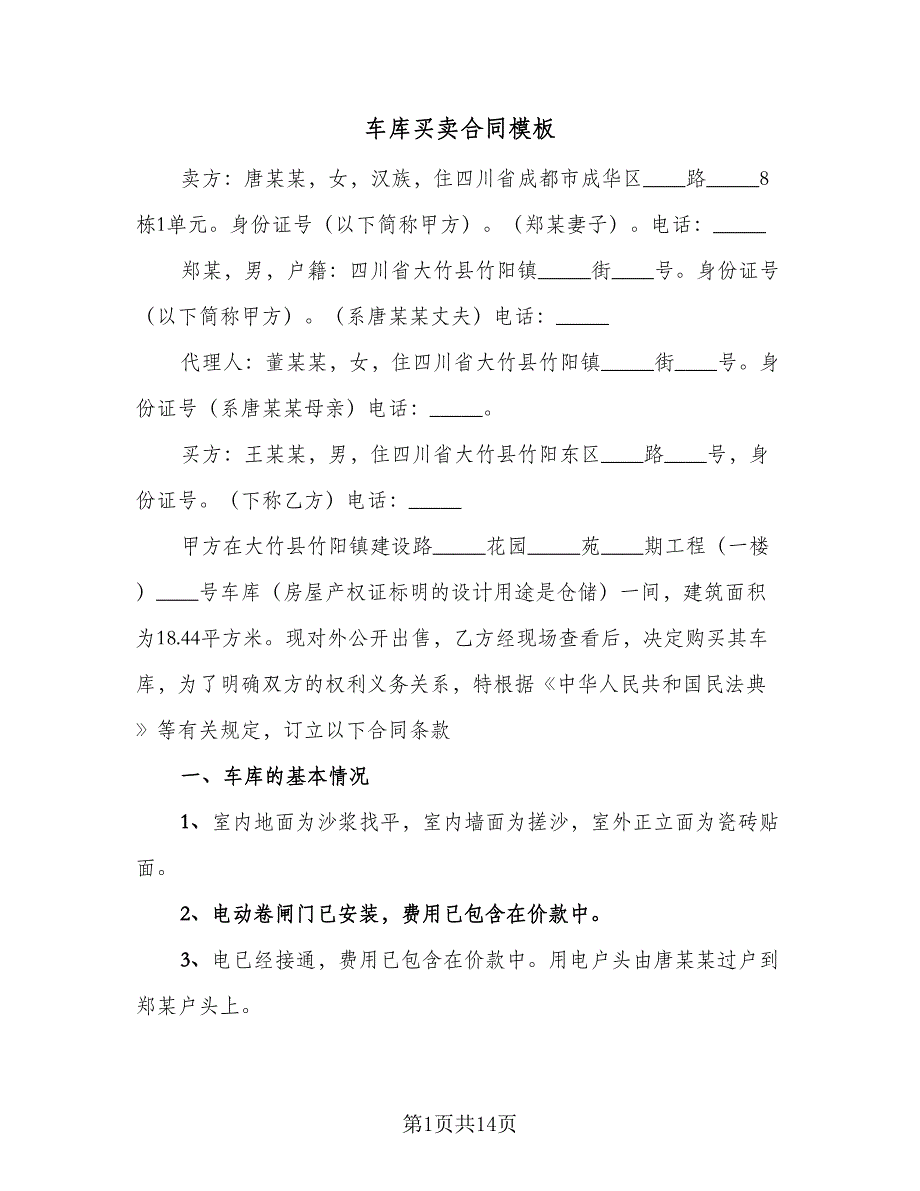 车库买卖合同模板
卖方：唐某某，女，汉族，住四川省成都市成华区____路_____8
栋1单元。身份证号（以下简称甲方）。（郑某妻子）。电话：_____
郑某，男，户籍：四川省大竹县竹阳镇_____街____号。身份证号
（以下简称甲方）。（系唐某某丈夫）电话：_____
代理人：董某某，女，住四川省大竹县竹阳镇_____街____号。身
份证号（系唐某某母亲）电话：_____。
买方：王某某，男，住四川省大竹县竹阳东区____路____号，身
份证号。（下称乙方）电话：_____
甲方在大竹县竹阳镇建设路_____花园_____苑____期工程（一楼
）____号车库（房屋产权证标明的设计用途是仓储）一间，建筑面积
为18.44平方米。现对外公开出售，乙方经现场查看后，决定购买其车
库，为了明确双方的权利义务关系，特根据《中华人民共和国民法典
》等有关规定，订立以下合同条款
一、车库的基本情况
1、室内地面为沙浆找平，室内墙面为搓沙，室外正立面为瓷砖贴
面。
2、电动卷闸门已安装，费用已包含在价款中。
3、电已经接通，费用已包含在价款中。用电户头由唐某某过户到
郑某户头上。
第1页共14页